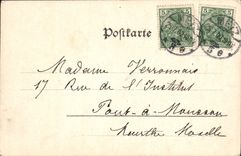 Postkarte
Madame Verronnais
17 Rue de l'Institut
Pont-à-Mousson
Meurthe Moselle